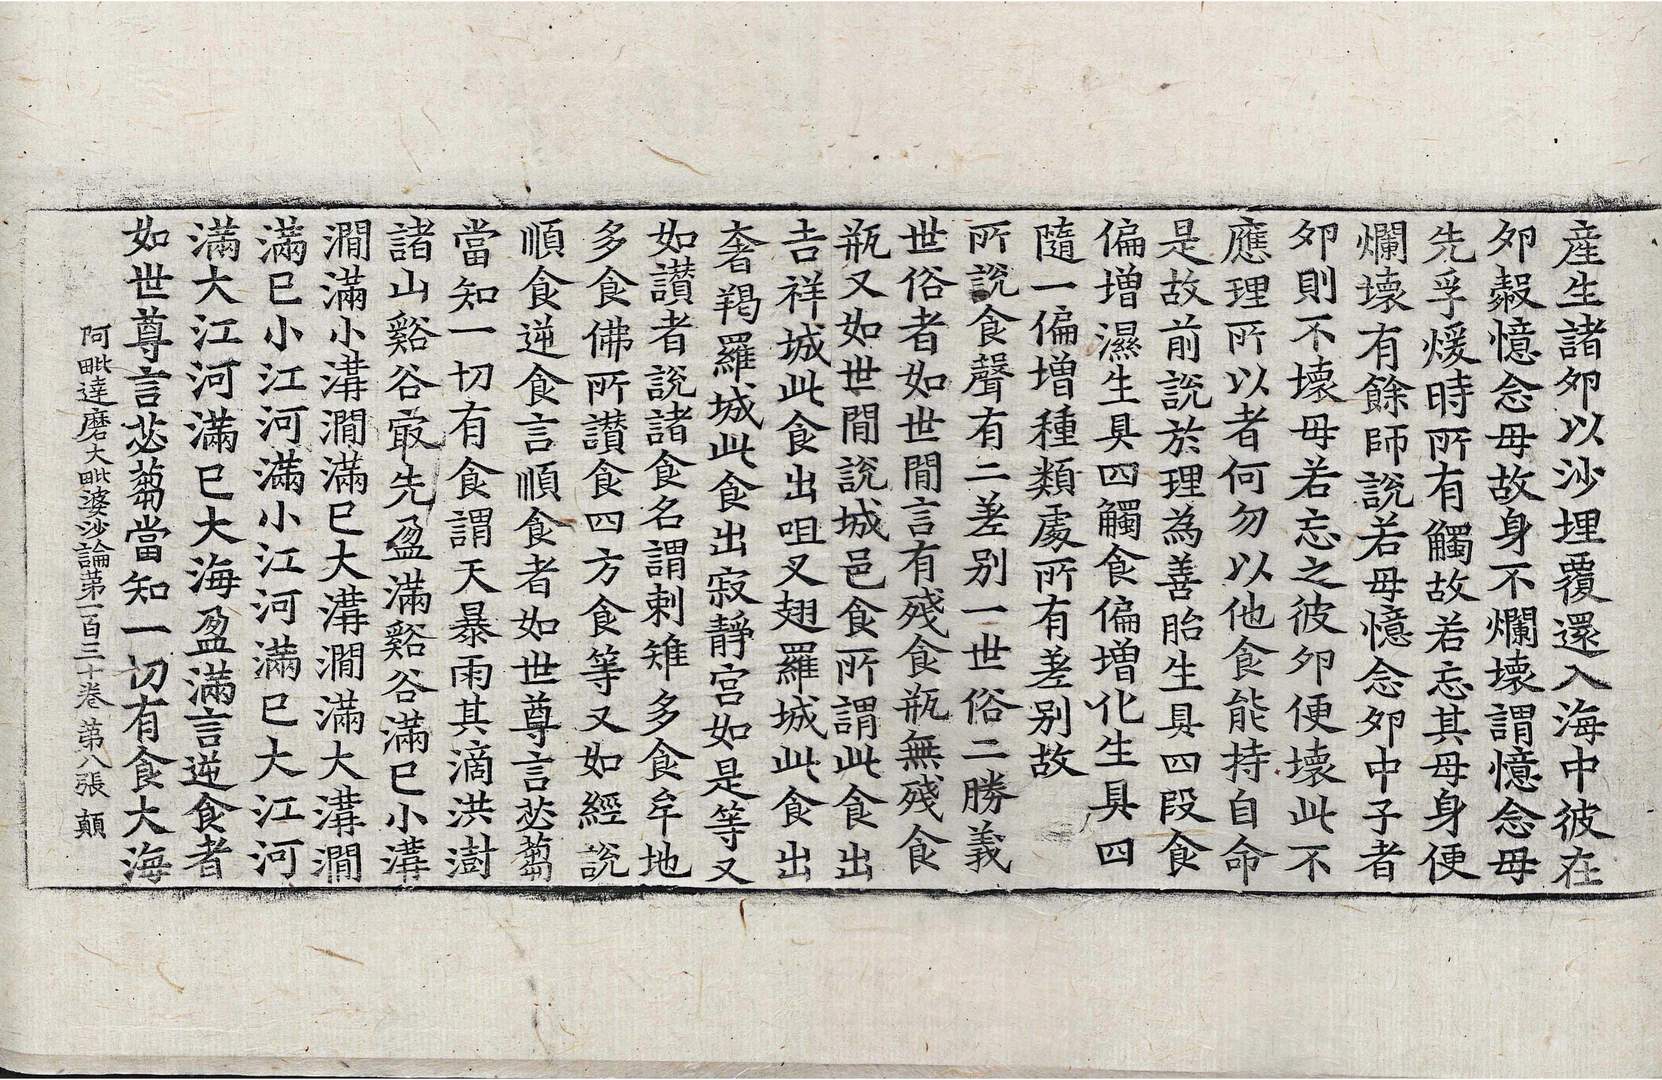 産生諸夘以沙埋覆還入海中彼在
夘㲉憶念母故身不爛壞謂憶念母
先孚煖時所有觸故若忘其母身便
爛壞有餘師說若母憶念夘中子者
夘則不壞母若忘之彼夘便壞此不
應理所以者何勿以他食能持自命
是故前說於理為善胎生具四段食
偏增濕生具四觸食偏增化生具四
隨一偏增種類處所有差別故
所說食聲有二差別一世俗二勝義
世俗者如世間言有殘食瓶無殘食
瓶又如世間說城邑食所謂此食出
吉祥城此食出咀叉翅羅城此食出
奢羯羅城此食出寂靜宮如是等又
如讃者說諸食名謂刺雉多食牟地
多食佛所讃食四方食等又如經說
順食逆食言順食者如世尊言苾蒭
當知一切有食謂天暴雨其滴洪澍
諸山谿谷㝡先盈滿谿谷滿已小溝
澗滿小溝澗滿已大溝澗滿大溝澗
滿已小江河滿小江河滿已大江河
滿大江河滿已大海盈滿言逆食者
如世尊言苾蒭當知一切有食大海
阿毗達磨大毗婆沙論第一百三十卷 第八張 顛